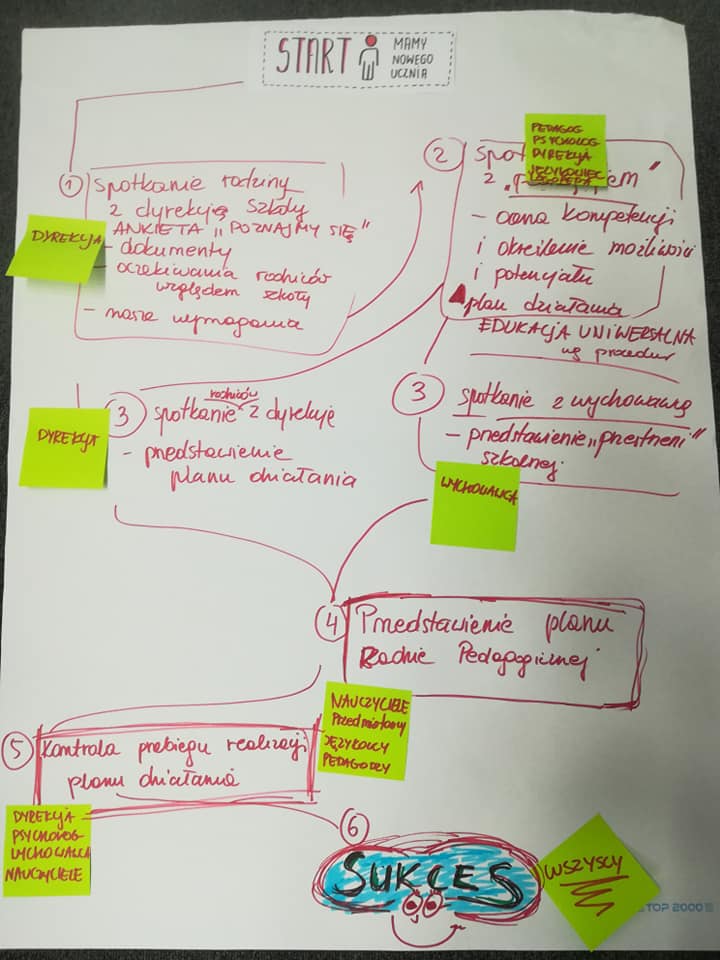 START
MAMY
NOWEGO
UCZNIA
1
spotkanie rodziny
z dyrekcją szkoły
ANKIETA "POZNAJMY SIĘ"
- dokumenty
- oczekiwania rodziców
względem szkoły
- nasze wymagania
DYREKCJA
2
PEDAGOG
PSYCHOLOG
DYREKCJA
JĘZYKOWIEC
z
- ocena kompetencji
i określenie możliwości
i potencjału
plan działania
EDUKACJA UNIWERSALNA
wg procedur
3
rodziców
spotkanie z dyrekcją
- przedstawienie
planu działania
DYREKCJA
3
spotkanie z wychowawcą
- przedstawienie "przestrzeni"
szkolnej
WYCHOWAWCA
4
Przedstawienie planu
Radzie Pedagogicznej
NAUCZYCIELE
Przedmiotowy
JĘZYKOWY
PEDAGODZY
5
Kontrola przebiegu realizacji
planu działania
DYREKCJA
PSYCHOLOG
WYCHOWAWCA
NAUCZYCIELE
6
SUKCES
WSZYSCY
TOP 2000